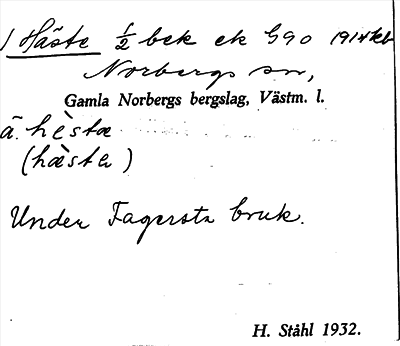 1 Häste 1/2 bek ek G90 1914 kb
Norbergs sn,
Gamla Norbergs bergslag, Västm. l.
ä. hèstæ
(hæ̀sta)
Under Fagersta bruk.
H. Ståhl 1932.